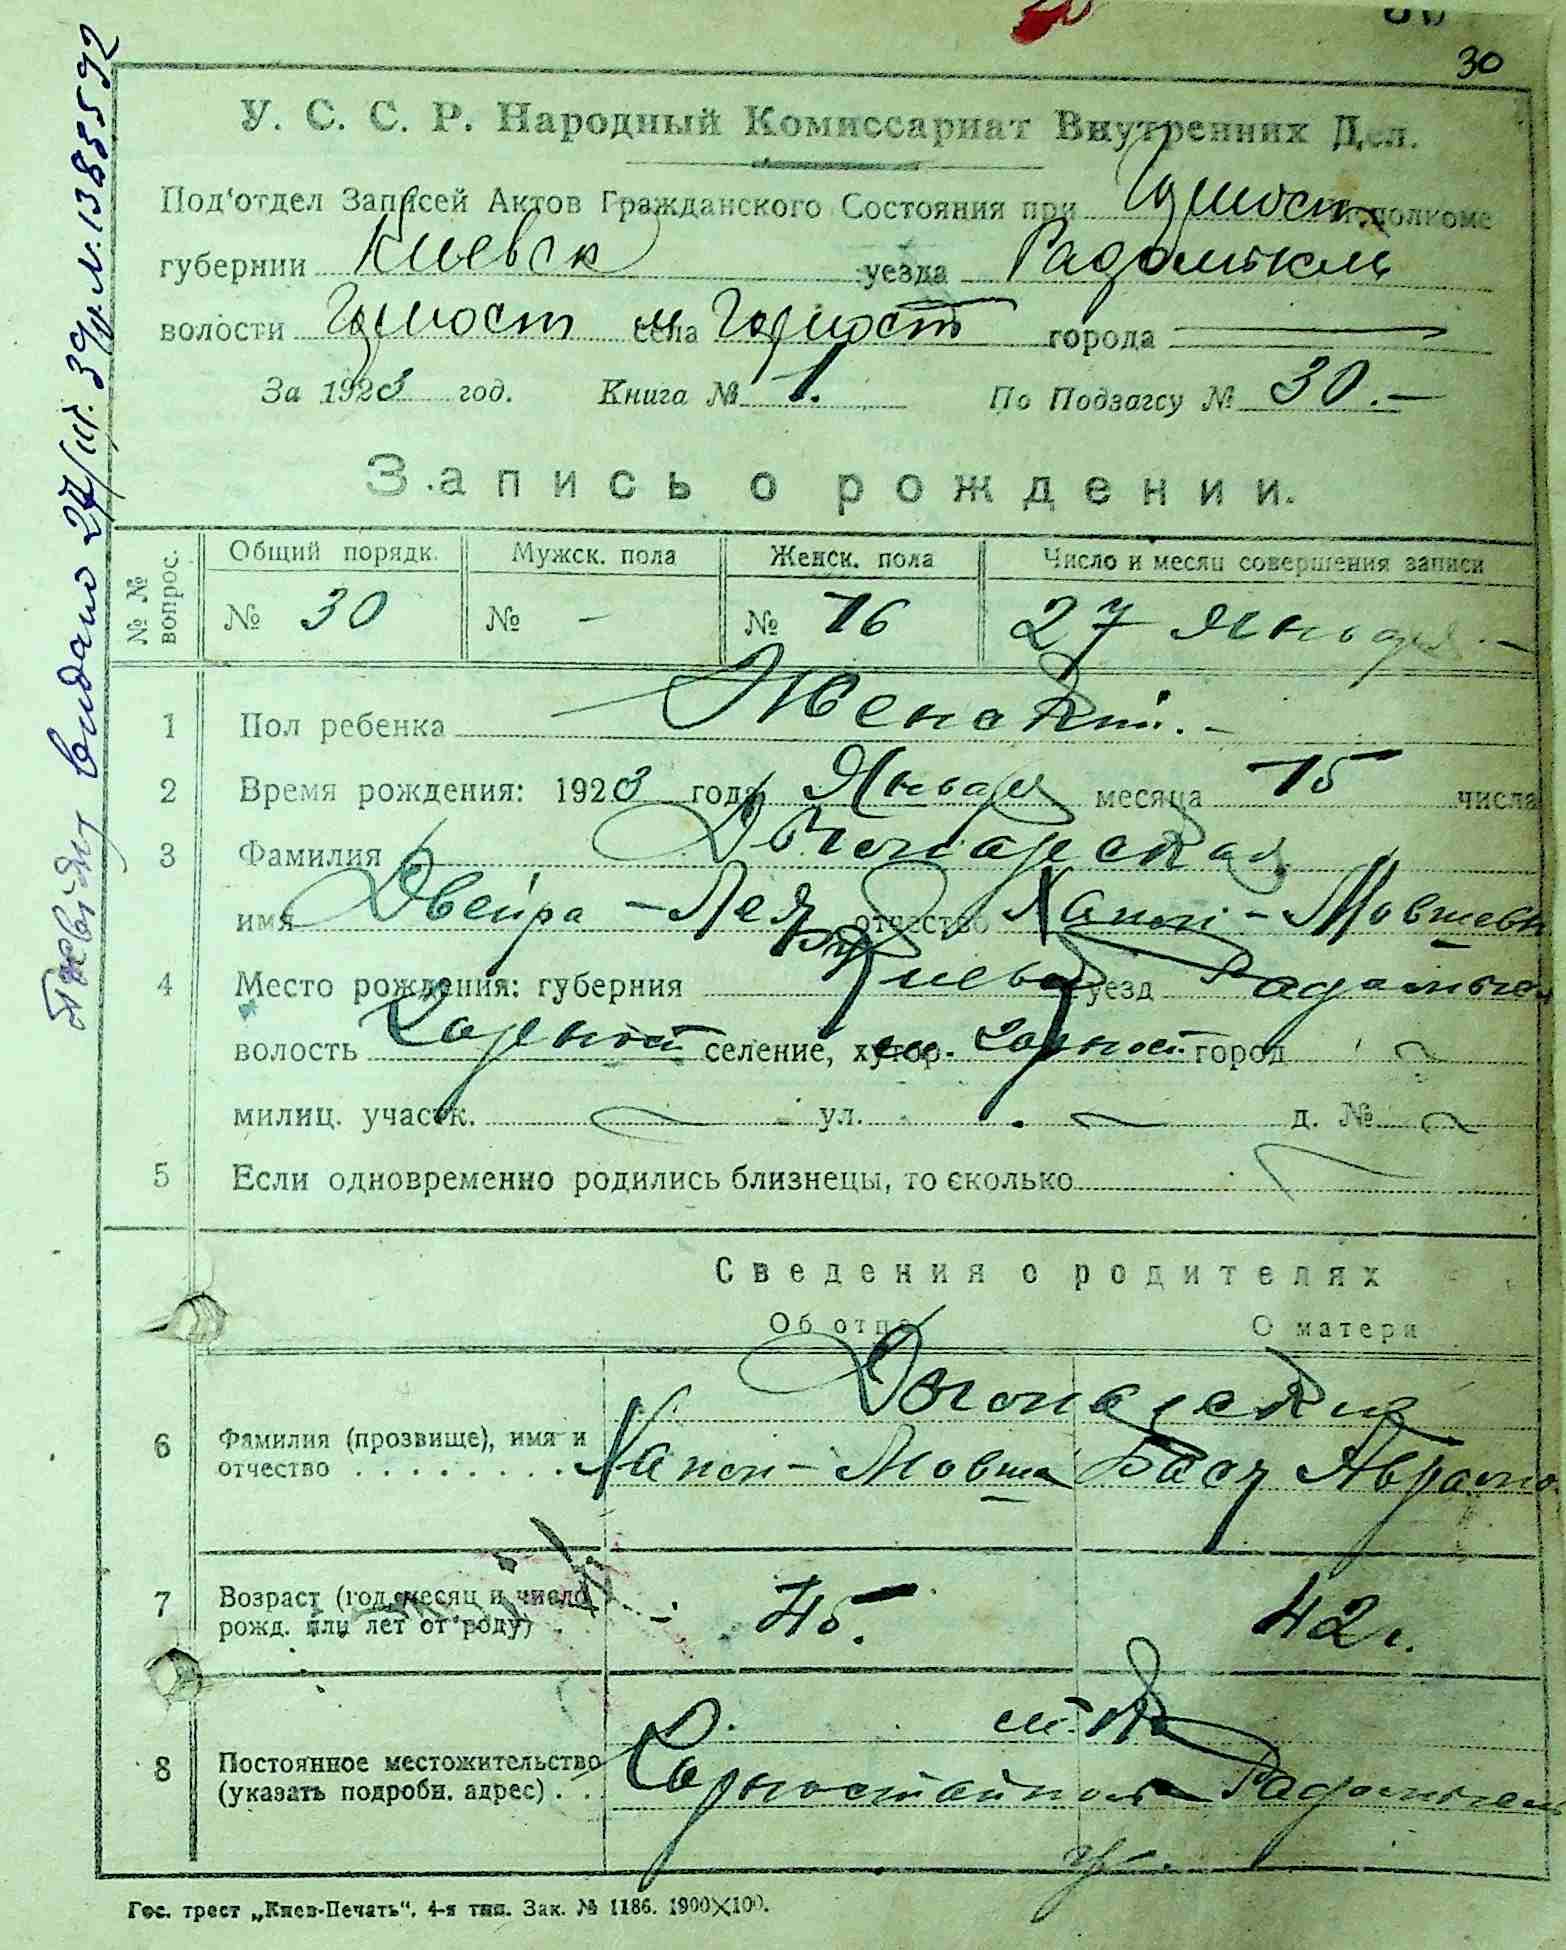 30
У. С. С. Р. Народный Комиссариат Внутренних Дел.
Под'отдел Записей Актов Гражданского Состояния при Горност исполкоме
губернии Киевск уезда Радомысль
волости Горност м села Горност города
За 1923 год. Книга № 1. По Подзагсу № 30.-
Запись о рождении.
№ № вопрос. Общий порядк. Мужск. пола Женск. пола Число и месяц совершения записи
№ 30 № - № 16 27 Января -
1 Пол ребенка Женский. -
2 Время рождения: 1923 года Января месяца 15 числа
3 Фамилия
имя Двейра - Лея отчество Хапон - Мовшевн
4 Место рождения: губерния Киевск уезд Радомысл
волость Горност селение, хутор м. Горност город
милиц. участк. ул. д. №
5 Если одновременно родились близнецы, то сколько
Сведения о родителях
Об отце О матери
6 Фамилия (прозвище), имя и
отчество . . . . . . . . . Хапон - Мовша Бася Аврамо
7 Возраст (год, месяц и число
рожд. или лет от роду) . 45. 42 г.
8 Постоянное местожительство
(указать подробн. адрес) . . . Горностайполь Радомысль
у.
Гос. трест „Киев-Печать“. 4-я тип. Зак. № 1186. 1900×100.
видано 27/III. 39 р. № 1385592